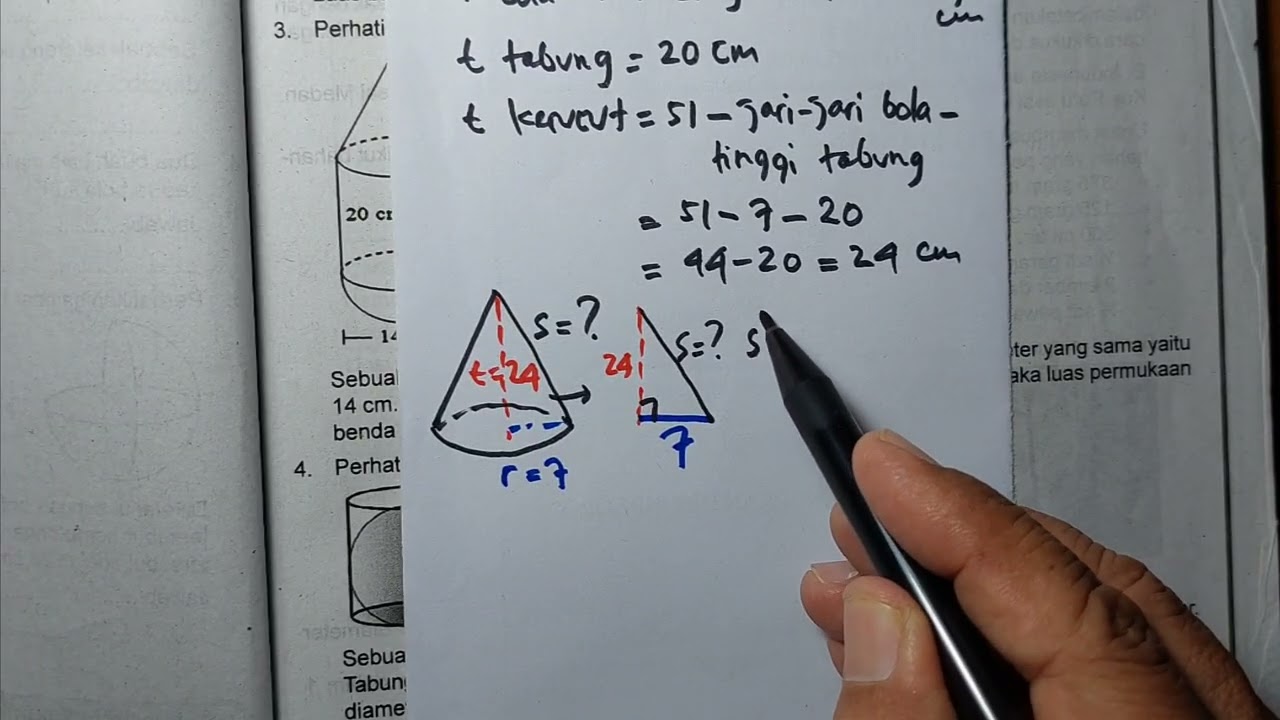 3. Perhati
cm
t tabung = 20 cm
t kerucut = 51 - jari-jari bola -
tinggi tabung
= 51 - 7 - 20
= 44 - 20 = 24 cm
20 c
14
s = ?
t = 24
r = 7
24
s = ?
7
s
ter yang sama yaitu
aka luas permukaan
Sebua
14 cm.
benda
4. Perhat
Sebua
Tabun
diame